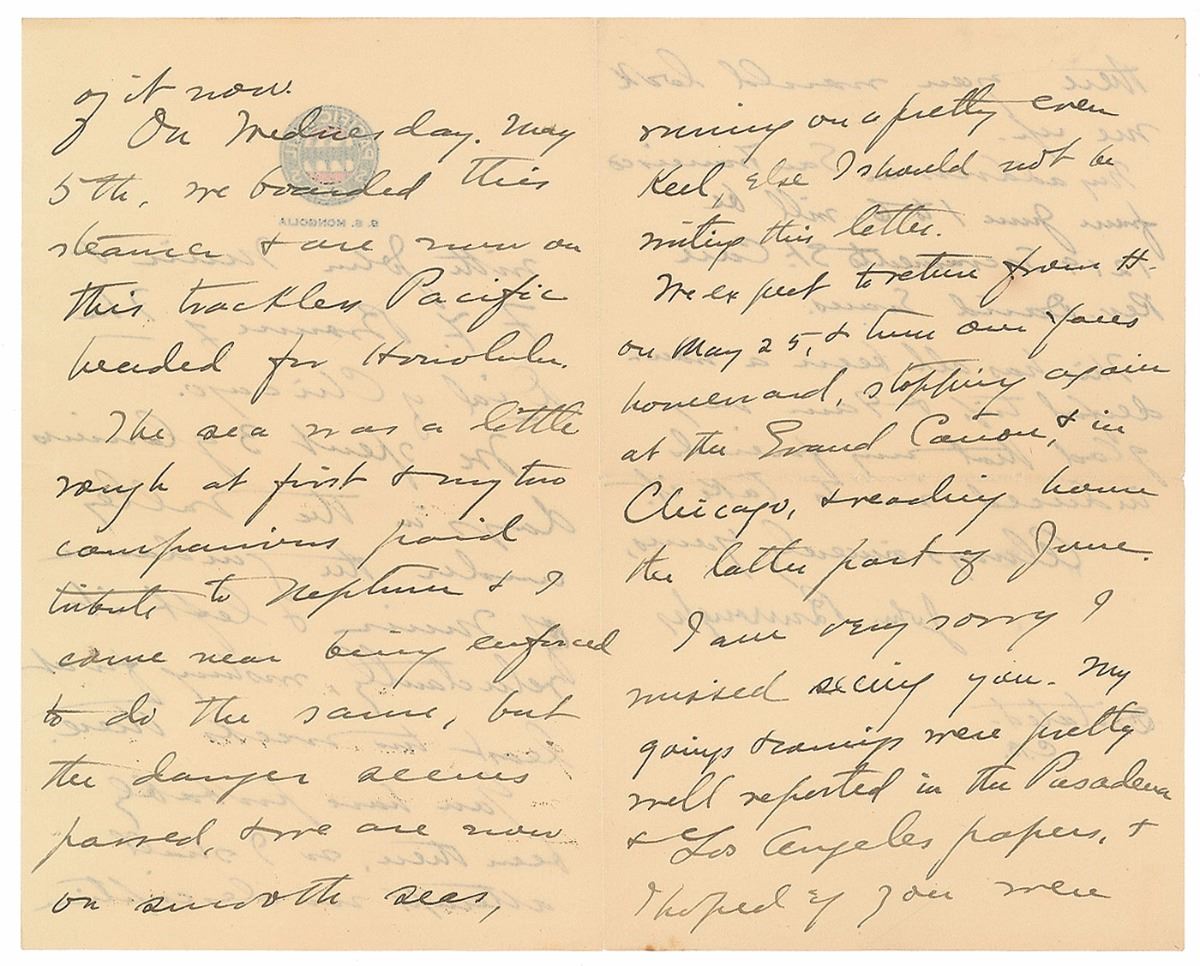 of it now.
On Wednesday, May
5th, we boarded this
steamer & are now on
this trackless Pacific
headed for Honolulu.
The sea was a little
rough at first & my two
companions paid
tribute to Neptune & I
came near being enforced
to do the same, but
the danger seems
passed, & we are now
on smooth seas,
running on a pretty even
Keel, else I should not be
writing this letter.
We expect to return from H.
on May 25, & turn our faces
homeward, stopping again
at the Grand Cañon, & in
Chicago, & reaching home
the latter part of June.
I am very sorry I
missed seeing you. My
goings & comings were pretty
well reported in the Pasadena
& Los Angeles papers, &
I hoped if you were
S. S. MONGOLIA